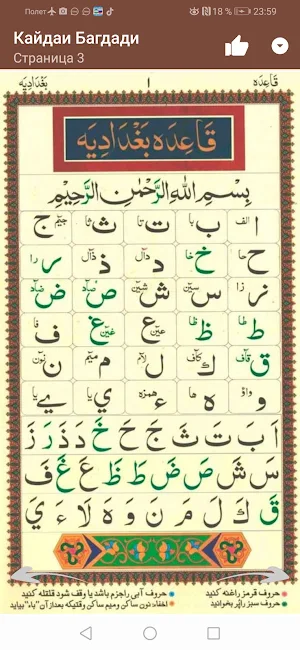 Полет 18 % 23:59
Кайдаи Багдади
Страница 3
قاعدہ ١ بغدادیہ
قَاعِدَه بَغْدَادِيَه
بِسْمِ اللهِ الرَّحْمٰنِ الرَّحِيْمِ
ا الف ب با ت تا ث ثا ج جیم
ح حا خ خا د دال ذ ذال ر را
ز زا س سین ش شین ص صاد ض ضاد
ط طا ظ ظا ع عین غ غین ف فا
ق قاف ك کاف ل لام م میم ن نون
و واؤ ه ها ء همزه ي يا ے يا
اَ بَ تَ ثَ جَ حَ خَ دَ ذَ رَ زَ
سَ شَ صَ ضَ طَ ظَ عَ غَ فَ
قَ كَ لَ مَ نَ وَ هَ لَا ءَ يَ
حروف قرمز راغنه کنید حروف آبی راجزم باشد یا وقف شود قلقله کنید
حروف سبز راپُر بخوانید اخفاء: نون ساکن و میم ساکن وقتیکه بعدازآن "باء" بیاید